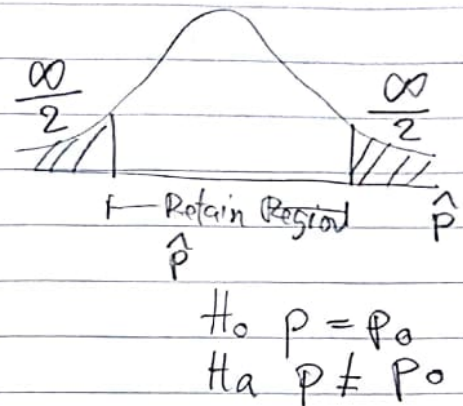 ∞/2 ∞/2
Retain Region
p̂ p̂
H₀ p = p₀
Ha p ≠ p₀